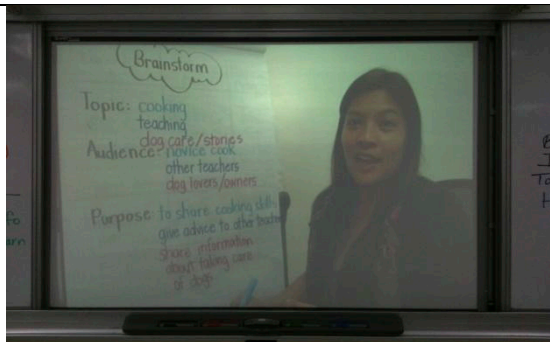 Brainstorm
Topic: cooking
teaching
dog care/stories
Audience: novice cook
other teachers
dog lovers/owners
Purpose: to share cooking skills
give advice to other teachers
share information
about taking care
of dogs